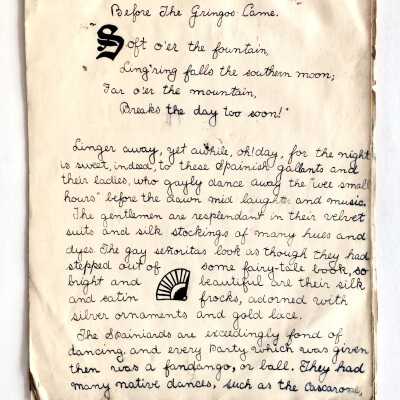 Before The Gringos Came.
"Soft o'er the fountain,
Ling'ring falls the southern moon;
Far o'er the mountain,
Breaks the day too soon!"
Linger away, yet awhile, oh! day, for the night
is sweet, indeed, to these Spainish gallants and
their ladies, who gayly dance away the "wee small
hours" before the dawn mid laughter and music.
The gentlemen are resplendant in their velvet
suits and silk stockings of many hues and
dyes. The gay señoritas look as though they had
stepped out of some fairy-tale book, so
bright and beautiful are their silk
and satin frocks, adorned with
silver ornaments and gold lace.
The Spainiards are exceedingly fond of
dancing and every party which was given
then was a fandango, or ball. They had
many native dances, such as the Cascarone,